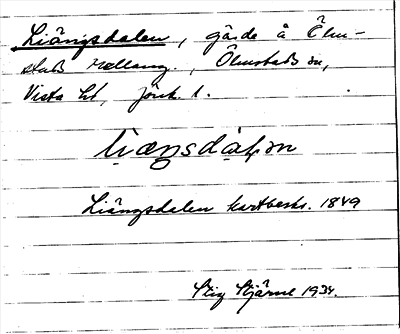 Liängsdalen, gärde å Ölm-
stads mellang., Ölmstads sn,
Vista hd, Jönk. l.
Liängsdalen kartbeskr. 1849
Stig Stjärne 1934.